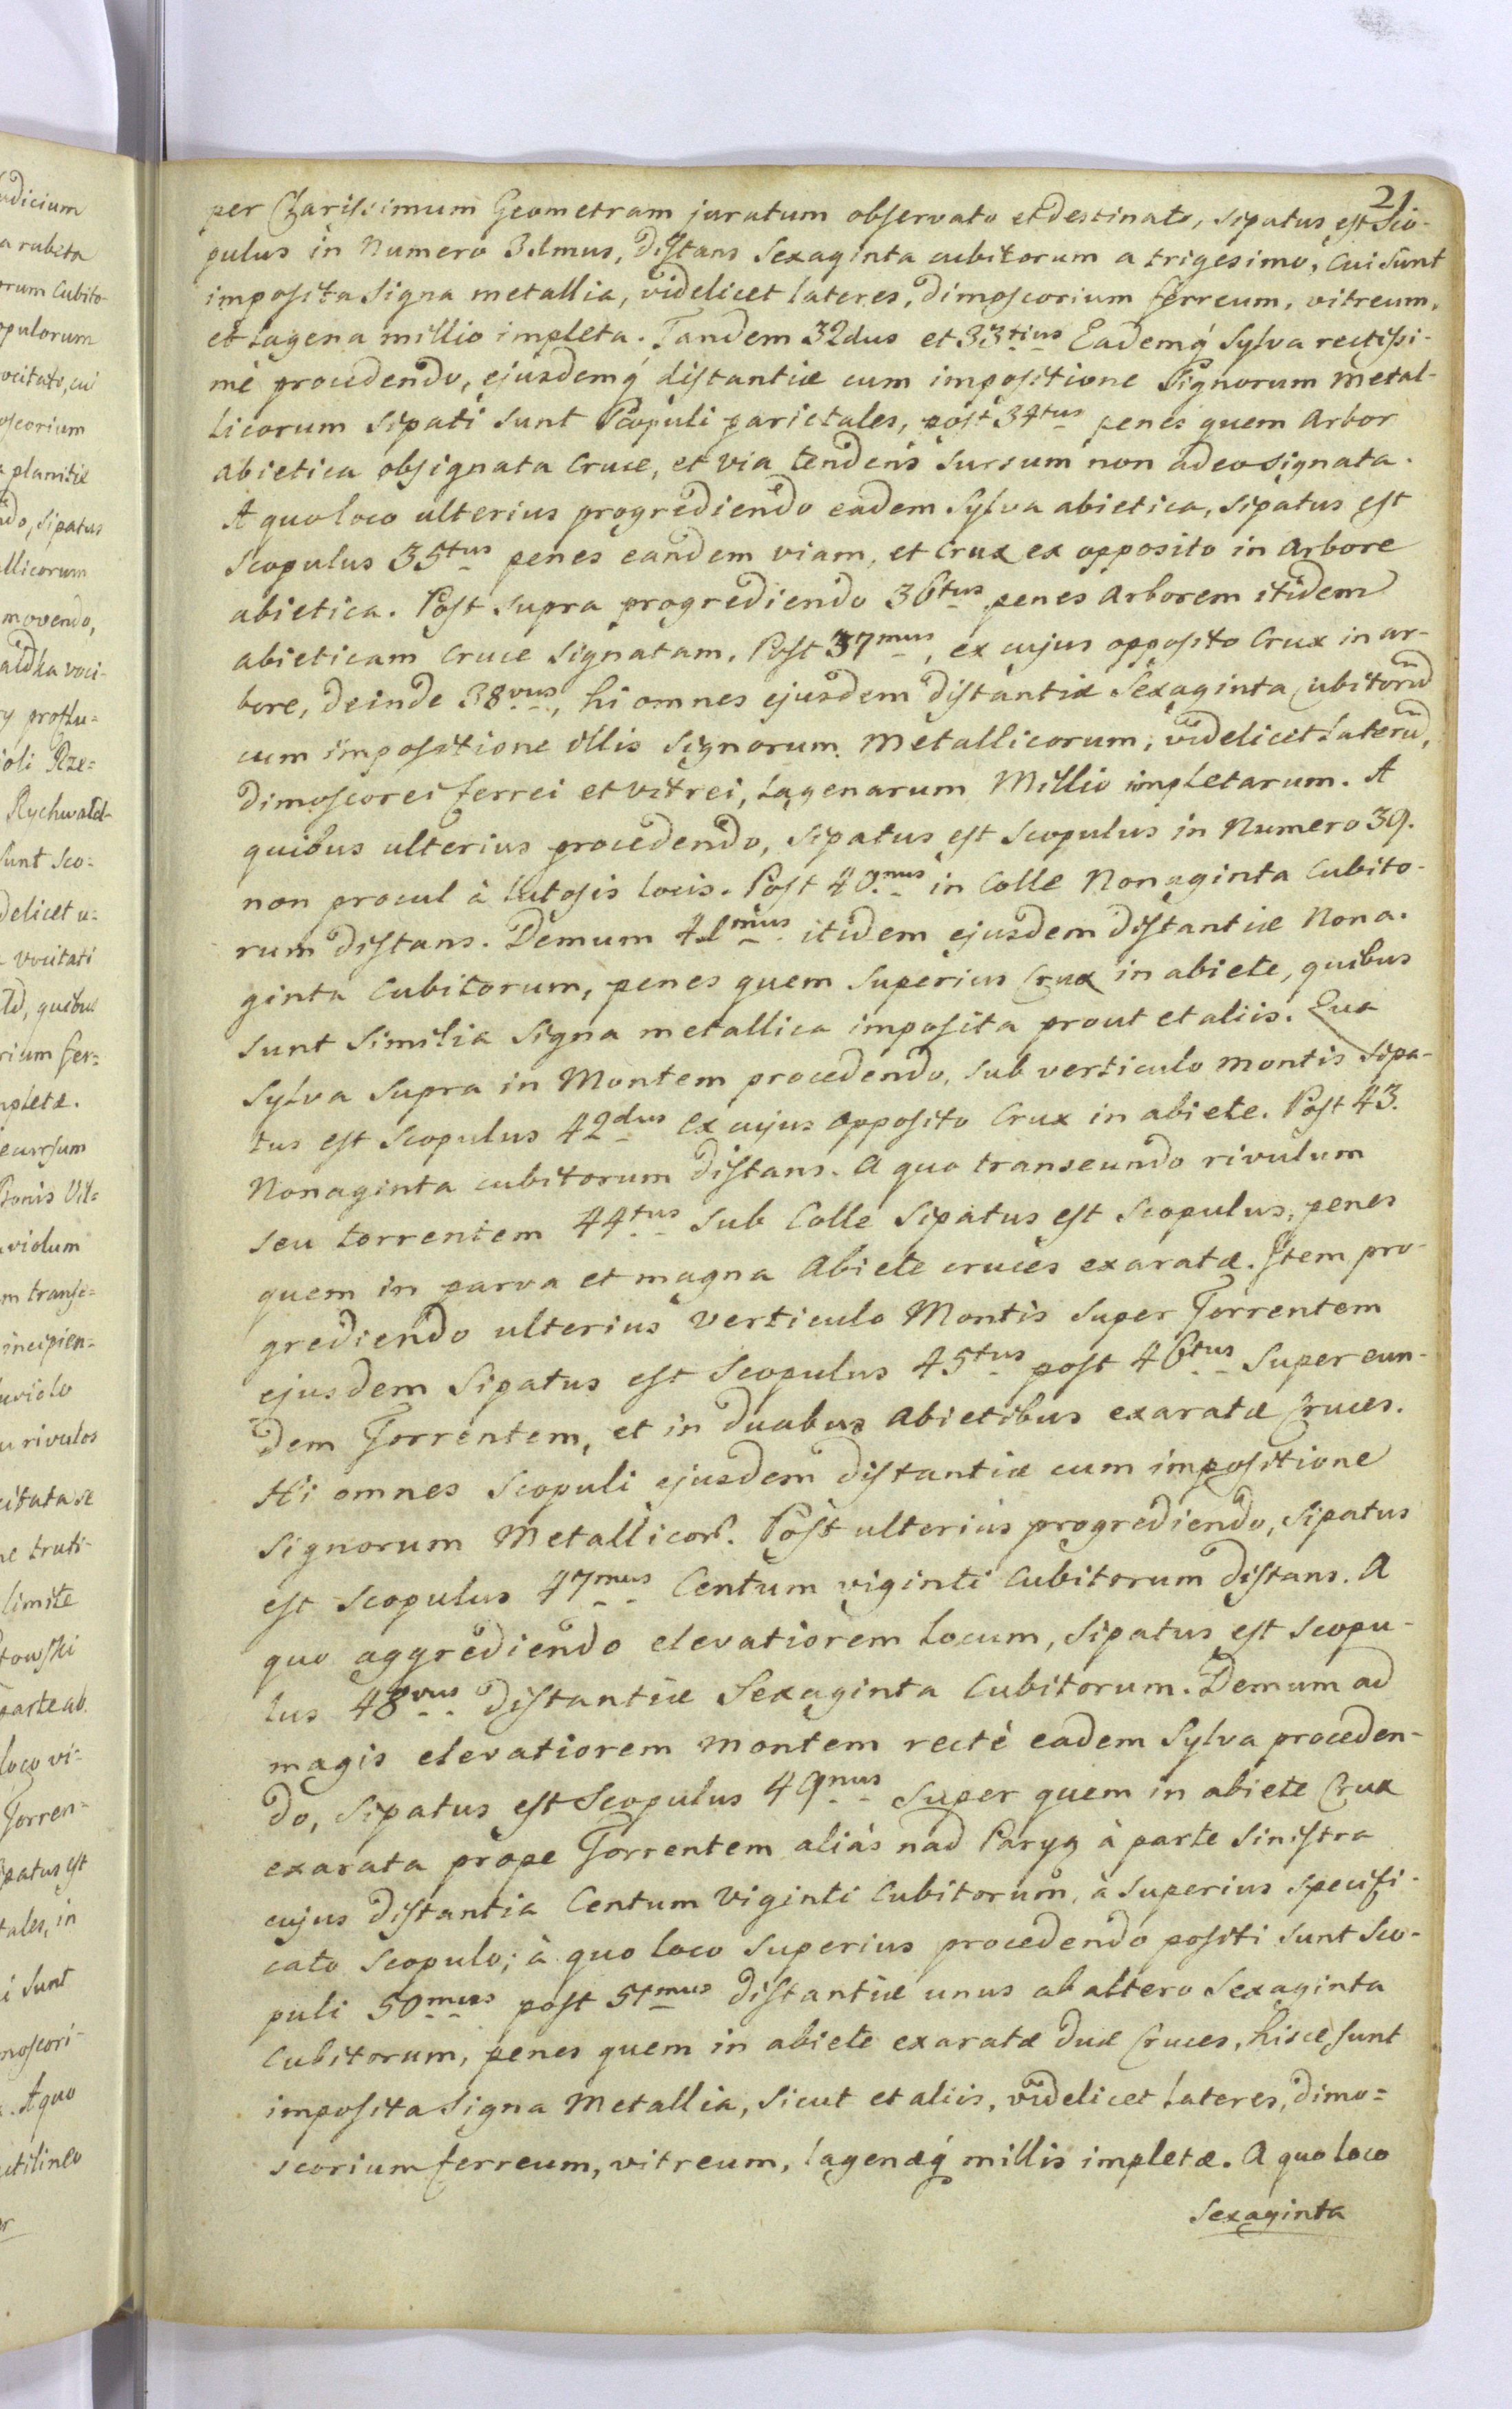 21
per Charissimum Geometram juratum observato et destinato, sipatus est Sco-
pulus in Numero 31mus, distans Sexaginta cubitorum a trigesimo, cui sunt
imposita Signa metallia, videlicet lateres, dimoscorium ferreum, vitreum,
et Lagena millio impleta. Tandem 32dus et 33tius Eademq́ Sylva rectissi-
mè procedendo, ejusdemq́ distantiæ cum impositione Signorum metal-
licorum Sipati sunt Scopuli parietales, post 34tus penes quem Arbor
abietica obsignata Cruce, et via tendens sursum non adeo signata.
A quo loco ulterius progrediendo eadem Sylva abietica, Sipatus est
Scopulus 35tus penes eandem viam, et Crux ex opposito in Arbore
abietica. Post supra progrediendo 36tus penes Arborem itidem
abieticam Cruce Signatam. Post 37mus, ex cujus opposito Crux in ar-
bore, deinde 38vus, hi omnes ejusdem distantiæ Sexaginta Cubitorũ
cum impositione illis Signorum Metallicorum, videlicet Laterũ,
dimoscorei ferrei et vitrei, Lagenarum Millio impletarum. A
quibus ulterius procedendo, sipatus est Scopulus in Numero 39.
non procul à lutosis locis. Post 40mus in Colle Nonaginta Cubito-
rum distans. Demum 41mus itidem ejusdem distantiæ Nona-
ginta Cubitorum, penes quem Superius Crux in abiete, quibus
sunt Similia Signa metallica imposita prout et aliis. Qua
Sylva supra in Montem procedendo, sub verticulo montis sipa-
tus est Scopulus 42dus ex cujus opposito Crux in abiete. Post 43.
Nonaginta cubitorum distans. A quo transeundo rivulum
seu torrentem 44tus sub Colle Sipatus est Scopulus, penes
quem in parva et magna Abiete cruces exaratæ. Item pro-
grediendo ulterius verticulo Montis super Torrentem
ejusdem Sipatus est Scopulus 45tus post 46tus Super eun-
dem Torrentem, et in duabus Abietibus exaratæ Cruces.
Hi omnes Scopuli ejusdem distantiæ cum impositione
Signorum Metallicor. Post ulterius progrediendo, Sipatus
est Scopulus 47mus Centum viginti Cubitorum distans. A
quo aggrediendo elevatiorem locum, Sipatus est Scopu-
lus 48vus distantiæ Sexaginta Cubitorum. Demum ad
magis elevatiorem montem rectè eadem Sylva proceden-
do, Sipatus est Scopulus 49nus Super quem in abiete Crux
exarata prope Torrentem aliàs nad Paryą à parte Sinistra
cujus distantia Centum Viginti Cubitorum, à Superius Specifi-
cato Scopulo; à quo loco Superius procedendo positi sunt Sco-
puli 50mus post 51mus distantiæ unus ab altero Sexaginta
Cubitorum, penes quem in abiete exaratæ duæ Cruces, hisce sunt
imposita Signa Metallia, Sicut et aliis, videlicet Lateres, dimo=
scorium ferreum, vitreum, lagenæq́ millis impletæ. A quo loco
Sexaginta